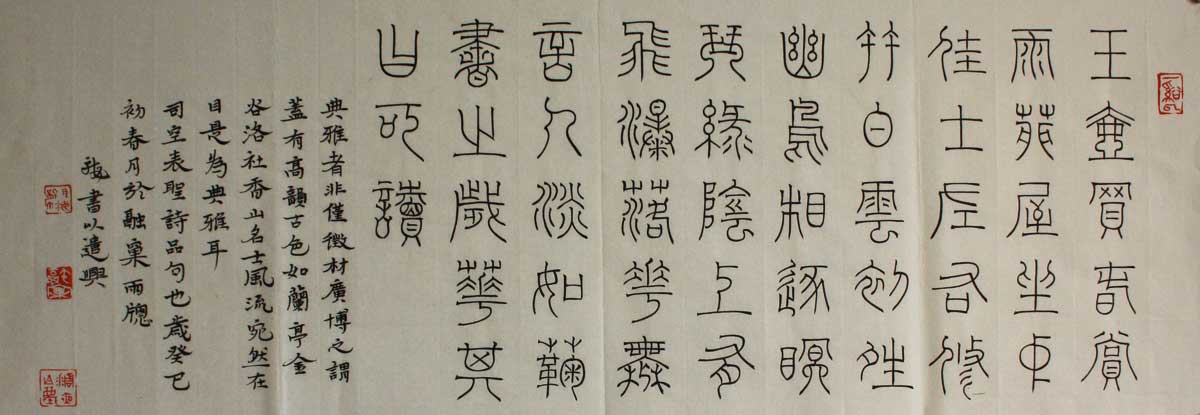 玉壺買春賞
雨茆屋坐中
佳士左右修
竹白雲初晴
幽鳥相逐眠
琴綠陰上有
飛瀑落花無
言人淡如菊
書之歲華其
曰可讀
典雅者非僅徵材廣博之謂
蓋有高韻古色如蘭亭金
谷洛社香山名士風流宛然在
目是為典雅耳
司空表聖詩品句也歲癸巳
初春月於融窠雨牕
書以遣興